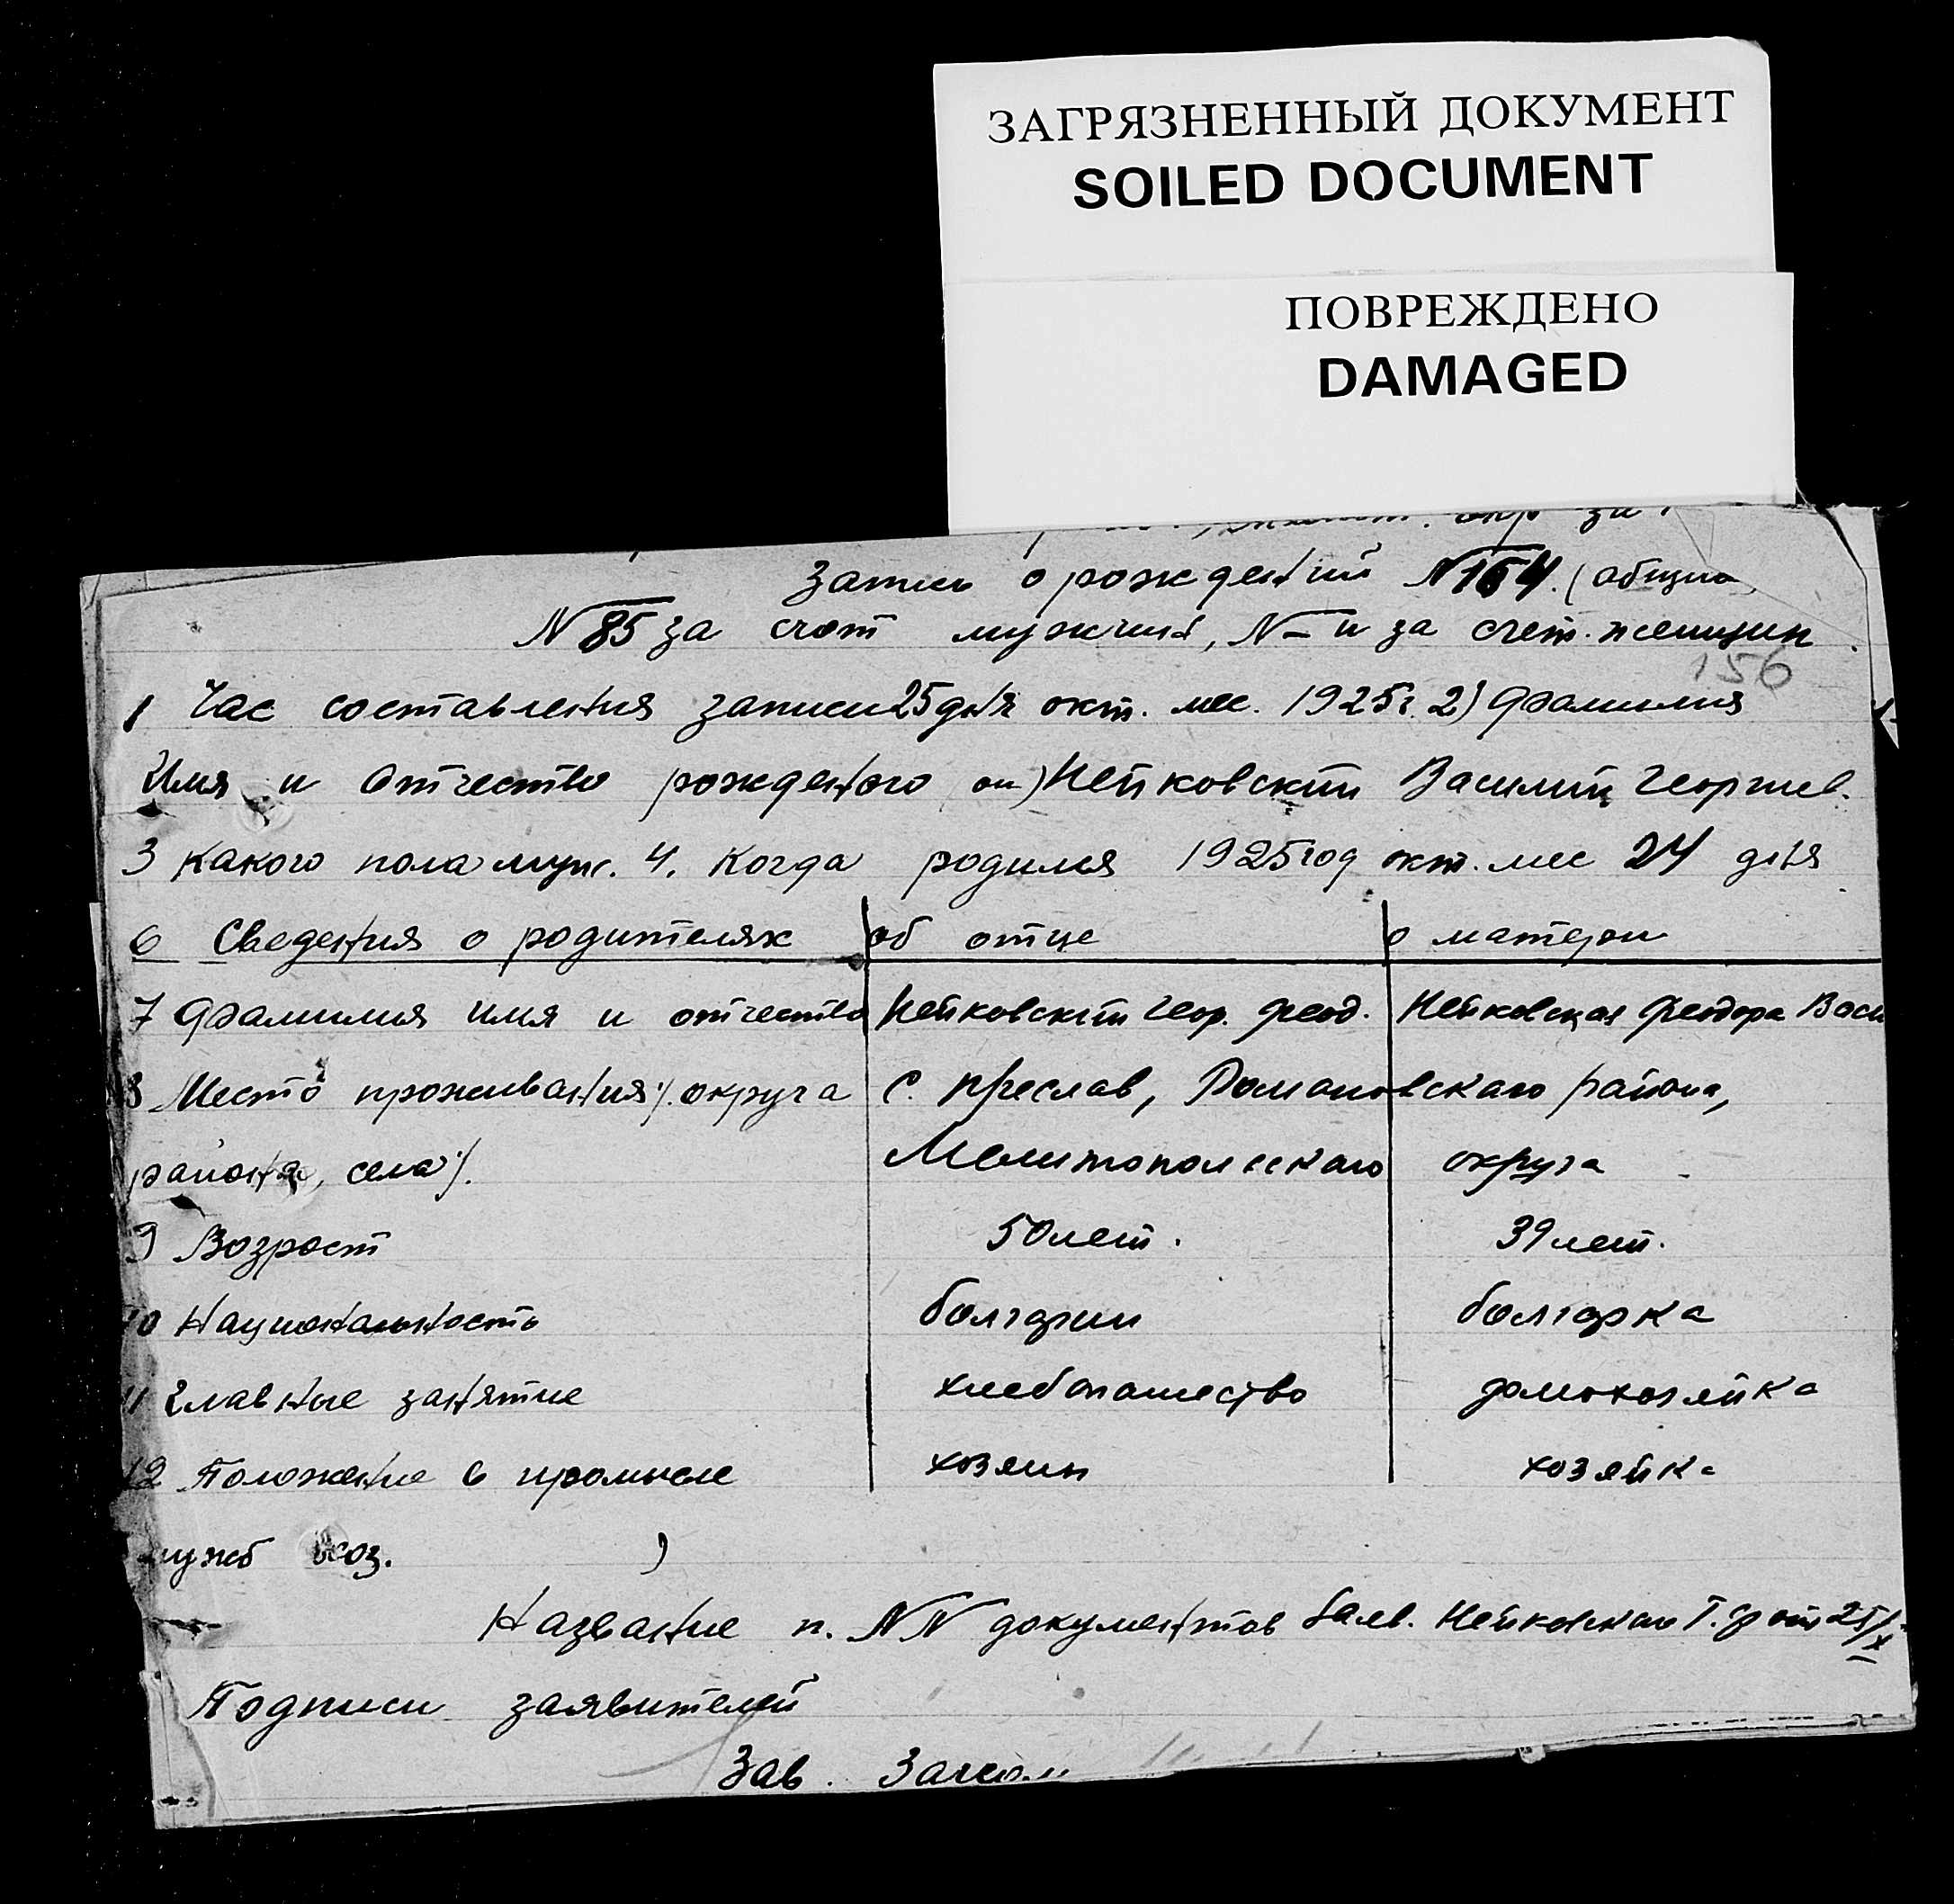 ЗАГРЯЗНЕННЫЙ ДОКУМЕНТ
SOILED DOCUMENT
ПОВРЕЖДЕНО
DAMAGED
Запись о рождений N 164. (общио
N 85 за счот мужчин, N – и за счет. женщин
156
1 Час составления записи 25 дня окт. мес. 1925 г. 2) Фамилия
Имя и Отчество рожденого он) Нейковский Василий Георгиев.
3 Какого пола муж. 4. Когда родился 1925 год окт. мес 24 дня
6 Сведения о родителях об отце о матери
7 Фамилия имя и отчество Нейковский Геор. Феод. Нейковская Феодора Васи
8 Место проживания /. округа С. Преслав, Романовскаго района,
района, села /. Мелитопольскаго округа
9 Возраст 50 лет. 39 лет.
10 Национальность болгарин болгарка
11 Главные занятие хлебопашество домохозяйка
12 Положение в промысле хозяин хозяйка
служб хоз. )
Название и. NN документов Заяв. Нейковскаго Г. Ф от 25/X
Подписи заявителей
Зав.